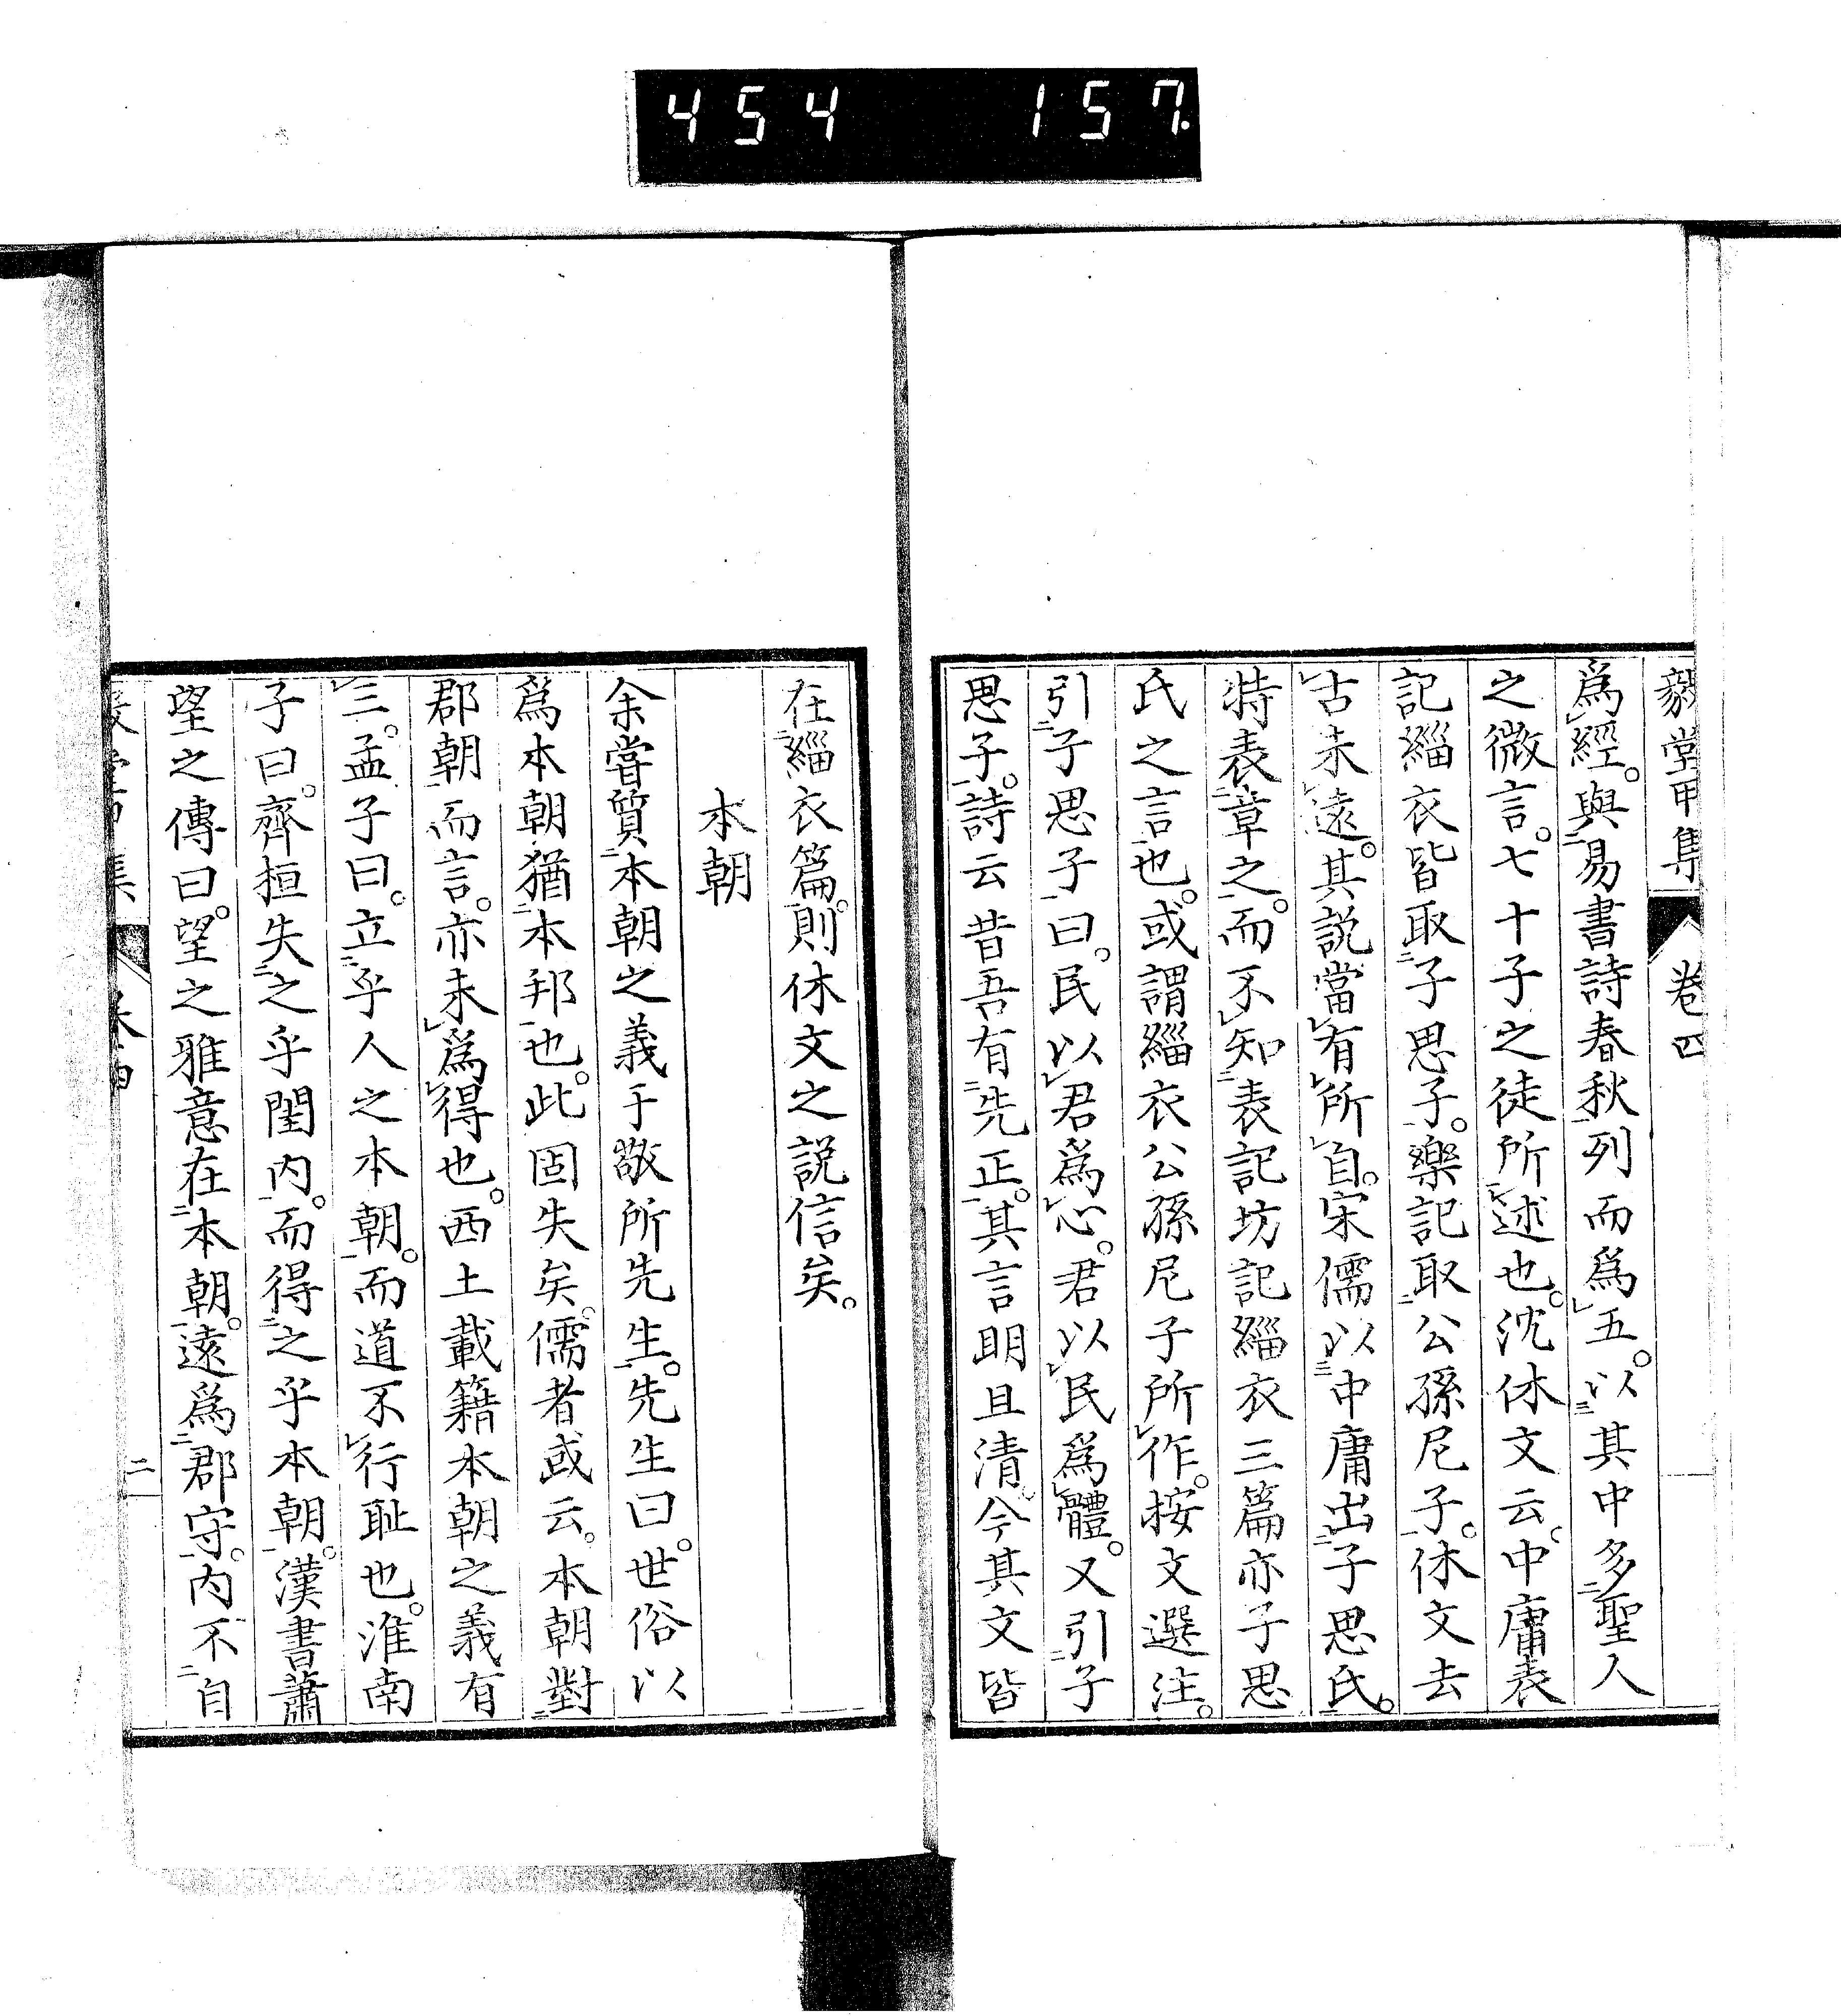 454 157.
毅堂甲集 卷四
爲經。與易書詩春秋列而爲五。以其中多聖人
之微言。七十子之徒所述也。沈休文云。中庸表
記緇衣皆取子思子。樂記取公孫尼子。休文去
古未遠。其説當有所自。宋儒以中庸出子思氏。
特表章之。而不知表記坊記緇衣三篇亦子思
氏之言也。或謂緇衣公孫尼子所作。按文選注。
引子思子曰。民以君爲心。君以民爲體。又引子
思子。詩云昔吾有先正。其言明且清。今其文皆
在緇衣篇。則休文之説信矣。
本朝
余嘗質本朝之義于敬所先生。先生曰。世俗以
爲本朝猶本邦也。此固失矣。儒者或云。本朝對
郡朝而言。亦未爲得也。西土載籍本朝之義有
三。孟子曰。立乎人之本朝。而道不行耻也。淮南
子曰。齊桓失之乎閨内。而得之乎本朝。漢書蕭
望之傳曰。望之雅意在本朝。遠爲郡守。内不自
二